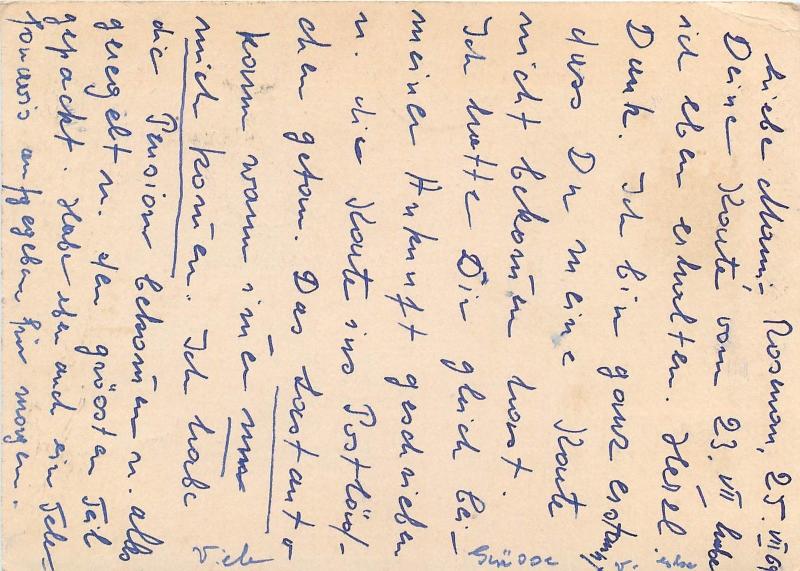 Rosman, 25. VII 64
Liebe Mami,
Deine Karte vom 23. VII habe
ich eben erhalten. Herzl.
Dank. Ich bin ganz erstaunt,
dass Du meine Karte
nicht bekom̄en hast.
Ich hatte Dir gleich bei
meiner Ankunft geschrieben
u. die Karte ins Postkäst-
chen getan. Das Lastauto
kann wann im̄er nun
mich kom̄en. Ich habe
die Pension bekom̄en u. alles
geregelt u. den grössten Teil
gepackt. Habe eben auch ein Tele-
fonavis aufgegeben für morgen.
Viele Grüsse